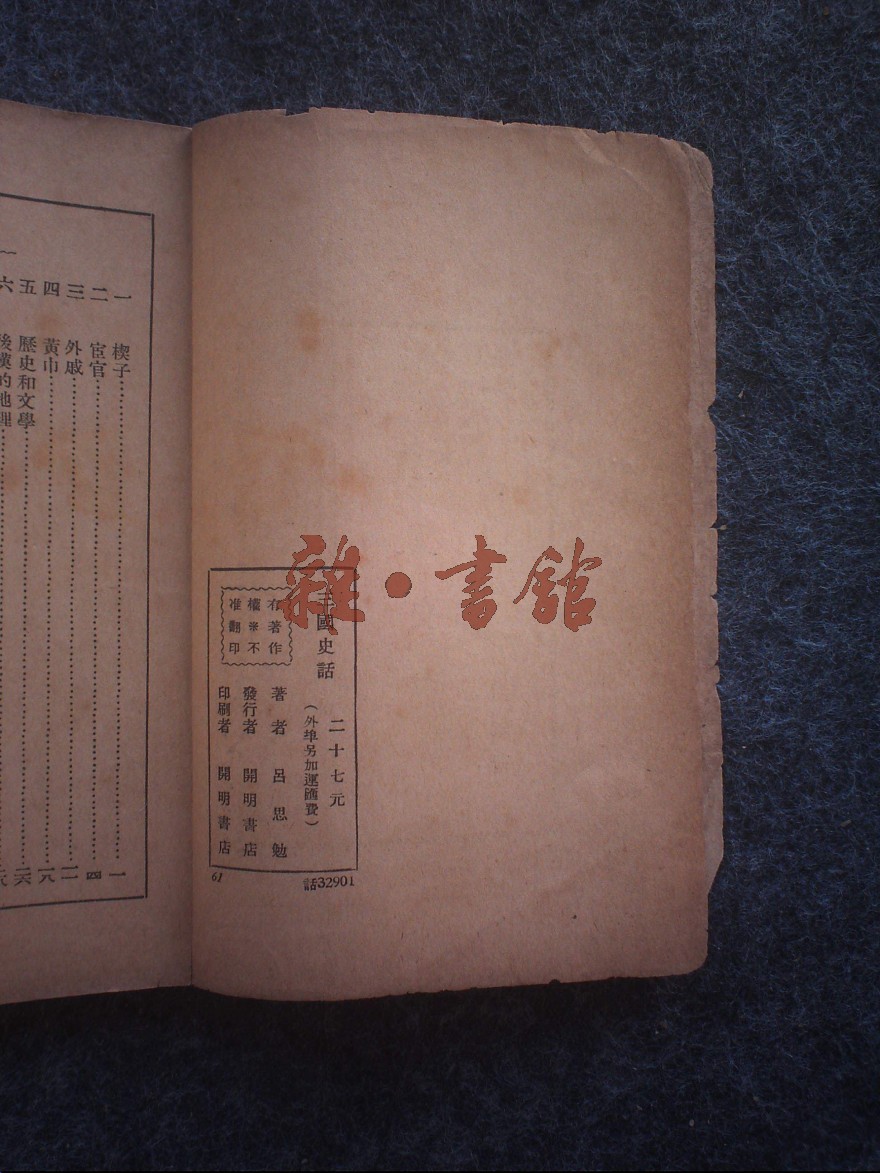 雜•書館
三國史話
二十七元
(外埠另加運匯費)
有著作
權※不
准翻印
著者 呂思勉
發行者 開明書店
印刷者 開明書店
61
話32901
一 楔子 一
二 宦官 四
三 外戚
四 黃巾
五 歷史和文學
六 後漢的地理